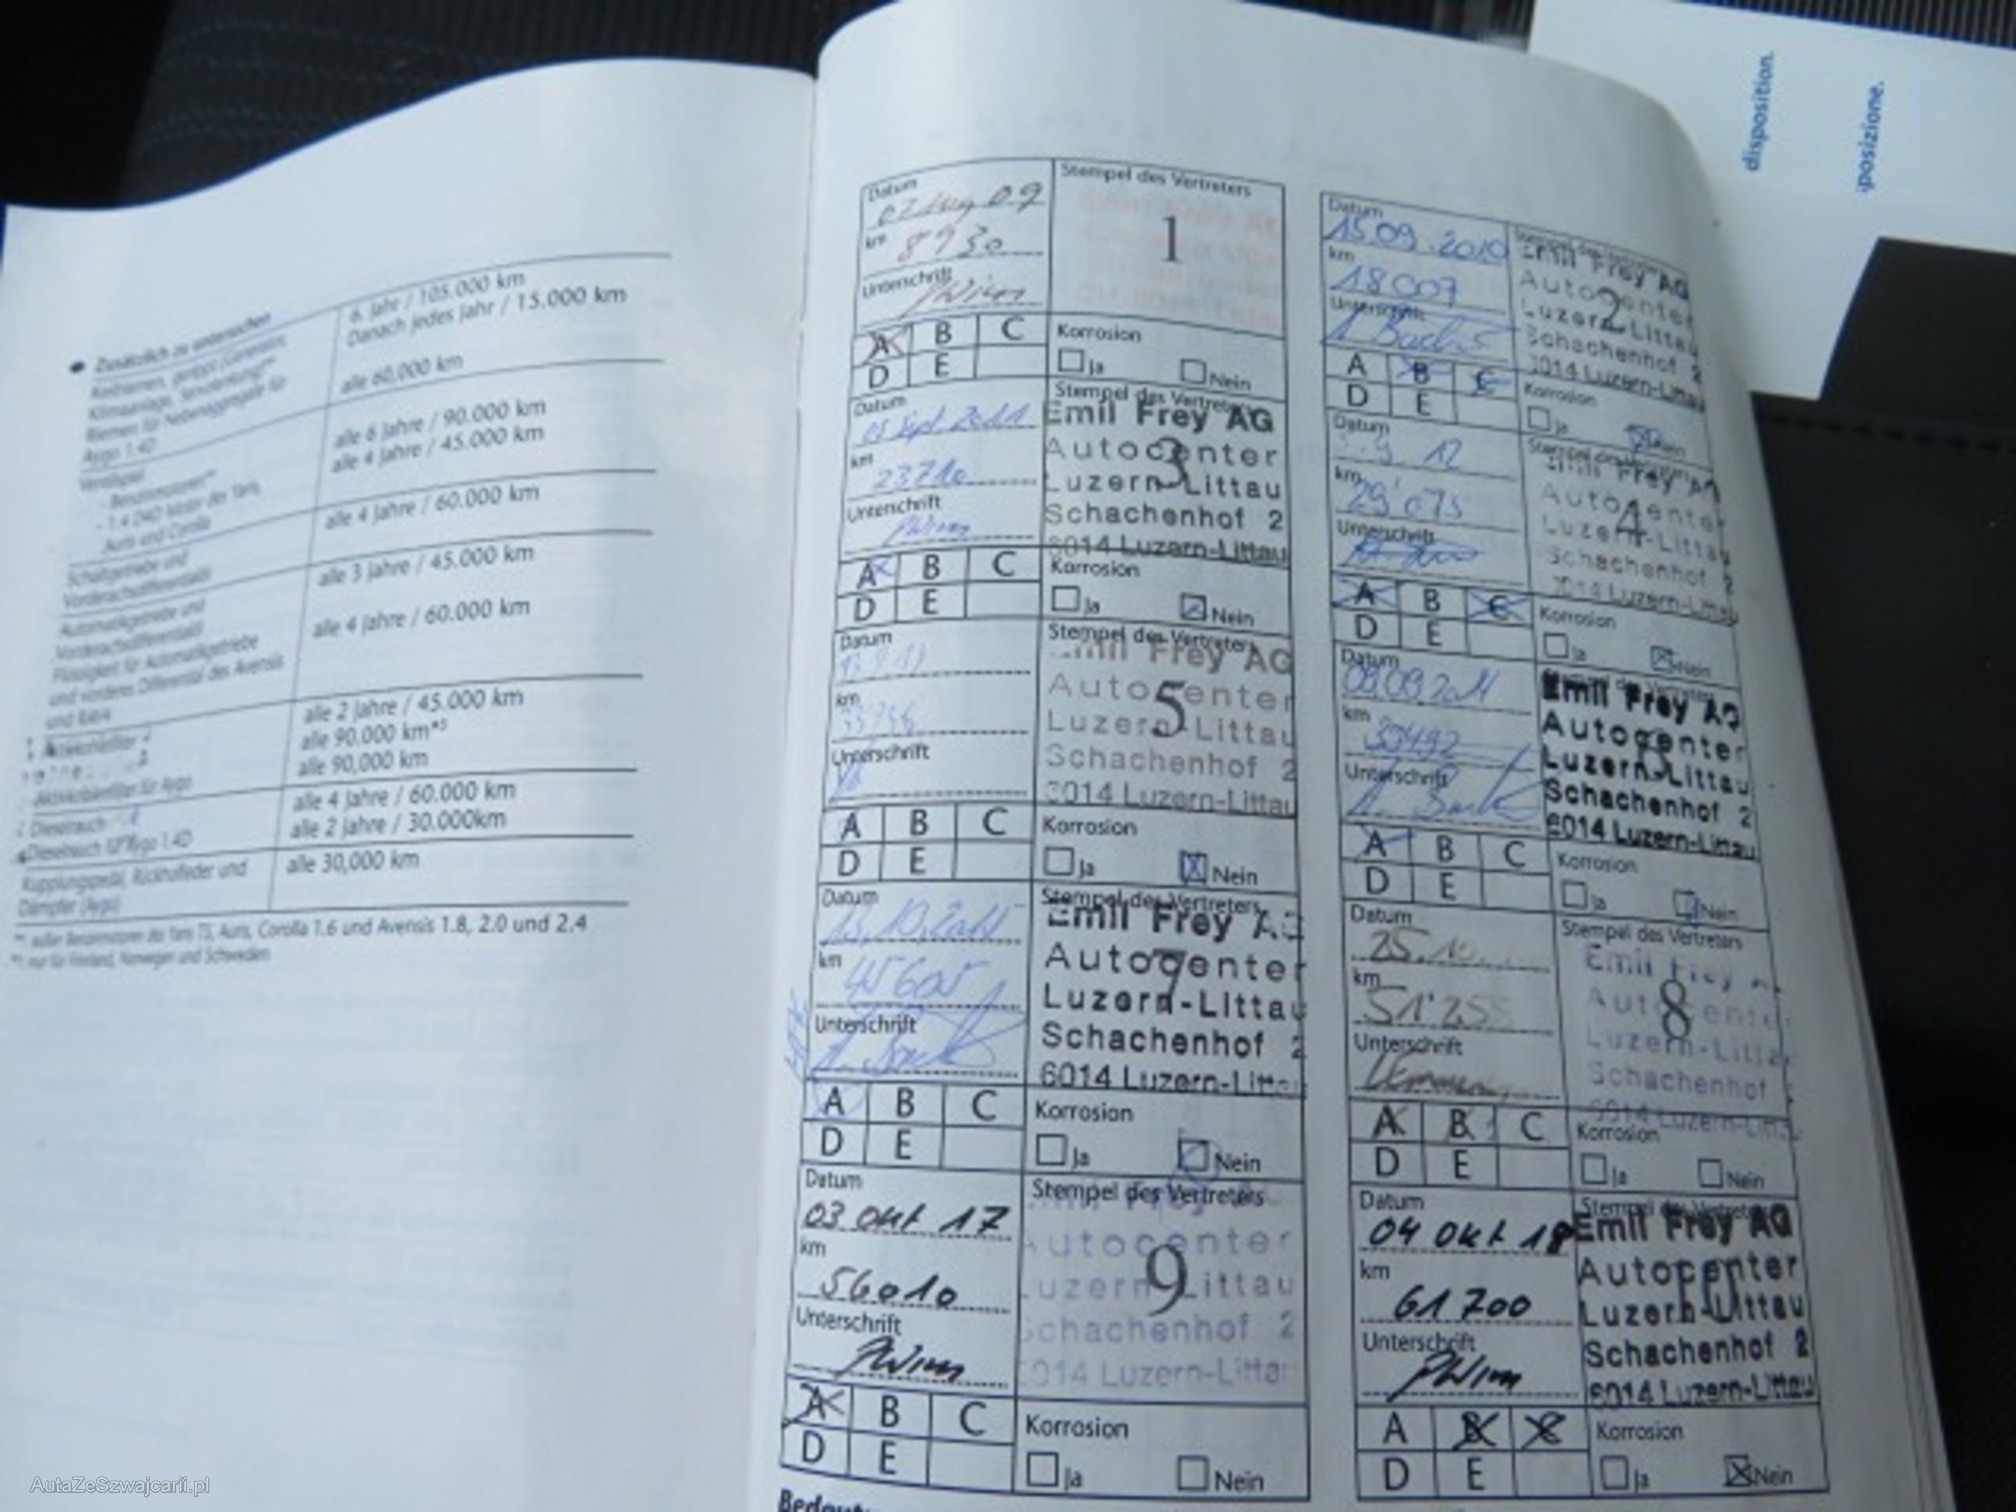 disposition.
posizione.
Zusätzlich zu untersuchen
Keilriemen, gerippt (Generator,
Klimaanlage, Servolenkung)
Riemen für Nebenaggregate für
Aygo 1.4D
6. Jahr / 105.000 km
Danach jedes Jahr / 15.000 km
alle 60,000 km
Ventilspiel
- Benzinmotoren
- 1.4 D4D Motor des Yaris,
Auris und Corolla
alle 6 Jahre / 90.000 km
alle 4 Jahre / 45.000 km
Schaltgetriebe und
Vorderachsdifferential
alle 4 Jahre / 60.000 km
Automatikgetriebe und
Vorderachsdifferential
Flüssigkeit für Automatikgetriebe
und vorderes Differential des Avensis
und RAV4
alle 3 Jahre / 45.000 km
alle 4 Jahre / 60.000 km
Aktivkohlefilter für Aygo
alle 2 Jahre / 45.000 km
alle 90.000 km*³
alle 90,000 km
Dieselrauch
Dieselrauch für Aygo 1.4D
alle 4 Jahre / 60.000 km
alle 2 Jahre / 30.000km
Kupplungspedal, Rückholfeder und
Dämpfer (Aygo)
alle 30,000 km
außer Benzinmotoren des Yaris TS, Auris, Corolla 1.6 und Avensis 1.8, 2.0 und 2.4
nur für Finnland, Norwegen und Schweden
Datum
Stempel des Vertreters
09
1
km
8930
Unterschrift
A B C
D E
Korrosion
Ja Nein
Datum
15.09.2010
km
18007
Unterschrift
Emil Frey AG
Autocenter
2
Luzern-Littau
Schachenhof 2
6014 Luzern-Littau
A B C
D E
Korrosion
Ja Nein
Datum
05 Sept. 2011
km
23710
Unterschrift
Stempel des Vertreters
Emil Frey AG
Autocenter
3
Luzern-Littau
Schachenhof 2
6014 Luzern-Littau
A B C
D E
Korrosion
Ja Nein
Datum
9. 12
km
29'075
Unterschrift
Emil Frey AG
Autocenter
4
Luzern-Littau
Schachenhof 2
6014 Luzern-Littau
A B C
D E
Korrosion
Ja Nein
Datum
km
Unterschrift
Stempel des Vertreters
Emil Frey AG
Autocenter
5
Luzern-Littau
Schachenhof 2
6014 Luzern-Littau
A B C
D E
Korrosion
Ja Nein
Datum
09.09.2014
km
39492
Unterschrift
Emil Frey AG
Autocenter
Luzern-Littau
Schachenhof 2
6014 Luzern-Littau
A B C
D E
Korrosion
Ja Nein
Datum
13.10.2015
km
45605
Unterschrift
Stempel des Vertreters
Emil Frey AG
Autocenter
7
Luzern-Littau
Schachenhof 2
6014 Luzern-Littau
A B C
D E
Korrosion
Ja Nein
Datum
25.10.
km
51'255
Unterschrift
Stempel des Vertreters
Emil Frey
Autocenter
8
Luzern-Littau
Schachenhof
6014 Luzern-Littau
A B C
D E
Korrosion
Ja Nein
Datum
03 Okt 17
km
56010
Unterschrift
Stempel des Vertreters
Autocenter
9
Luzern-Littau
Schachenhof 2
6014 Luzern-Littau
A B C
D E
Korrosion
Ja Nein
Datum
04 Okt 18
km
61700
Unterschrift
Stempel des Vertreters
Emil Frey AG
Autocenter
10
Luzern-Littau
Schachenhof 2
6014 Luzern-Littau
A B C
D E
Korrosion
Ja Nein
AutaZeSzwajcarii.pl